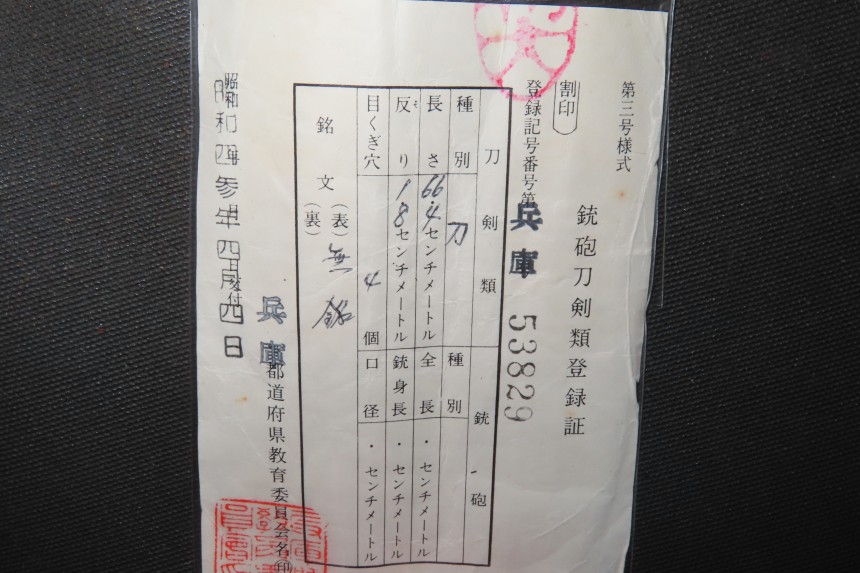 第三号様式
銃砲刀剣類登録証
割印
登録記号番号第
兵庫 53829
刀剣類
種別 刀
長さ 66.4センチメートル
反り 1.8センチメートル
目くぎ穴 4個
銃砲
種別
全長 ・センチメートル
銃身長 ・センチメートル
口径 ・センチメートル
銘文
(表) 無銘
(裏)
昭和四参年四月四日
兵庫
都道府県教育委員会名印